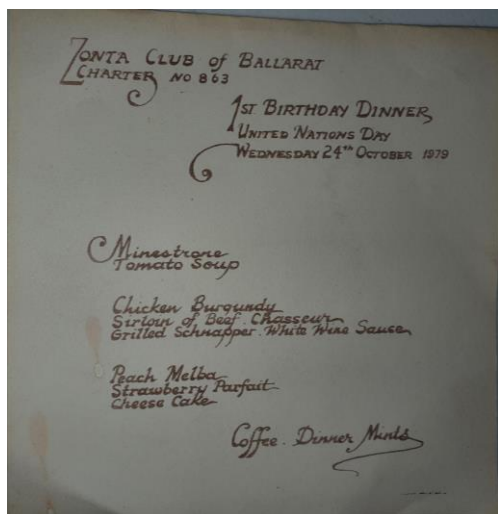 ZONTA CLUB of BALLARAT
CHARTER NO 863
1ST BIRTHDAY DINNER
UNITED NATIONS DAY
WEDNESDAY 24TH OCTOBER 1979
Minestrone
Tomato Soup
Chicken Burgundy
Sirloin of Beef. Chasseur
Grilled Schnapper. White Wine Sauce
Peach Melba
Strawberry Parfait
Cheese Cake
Coffee. Dinner Mints